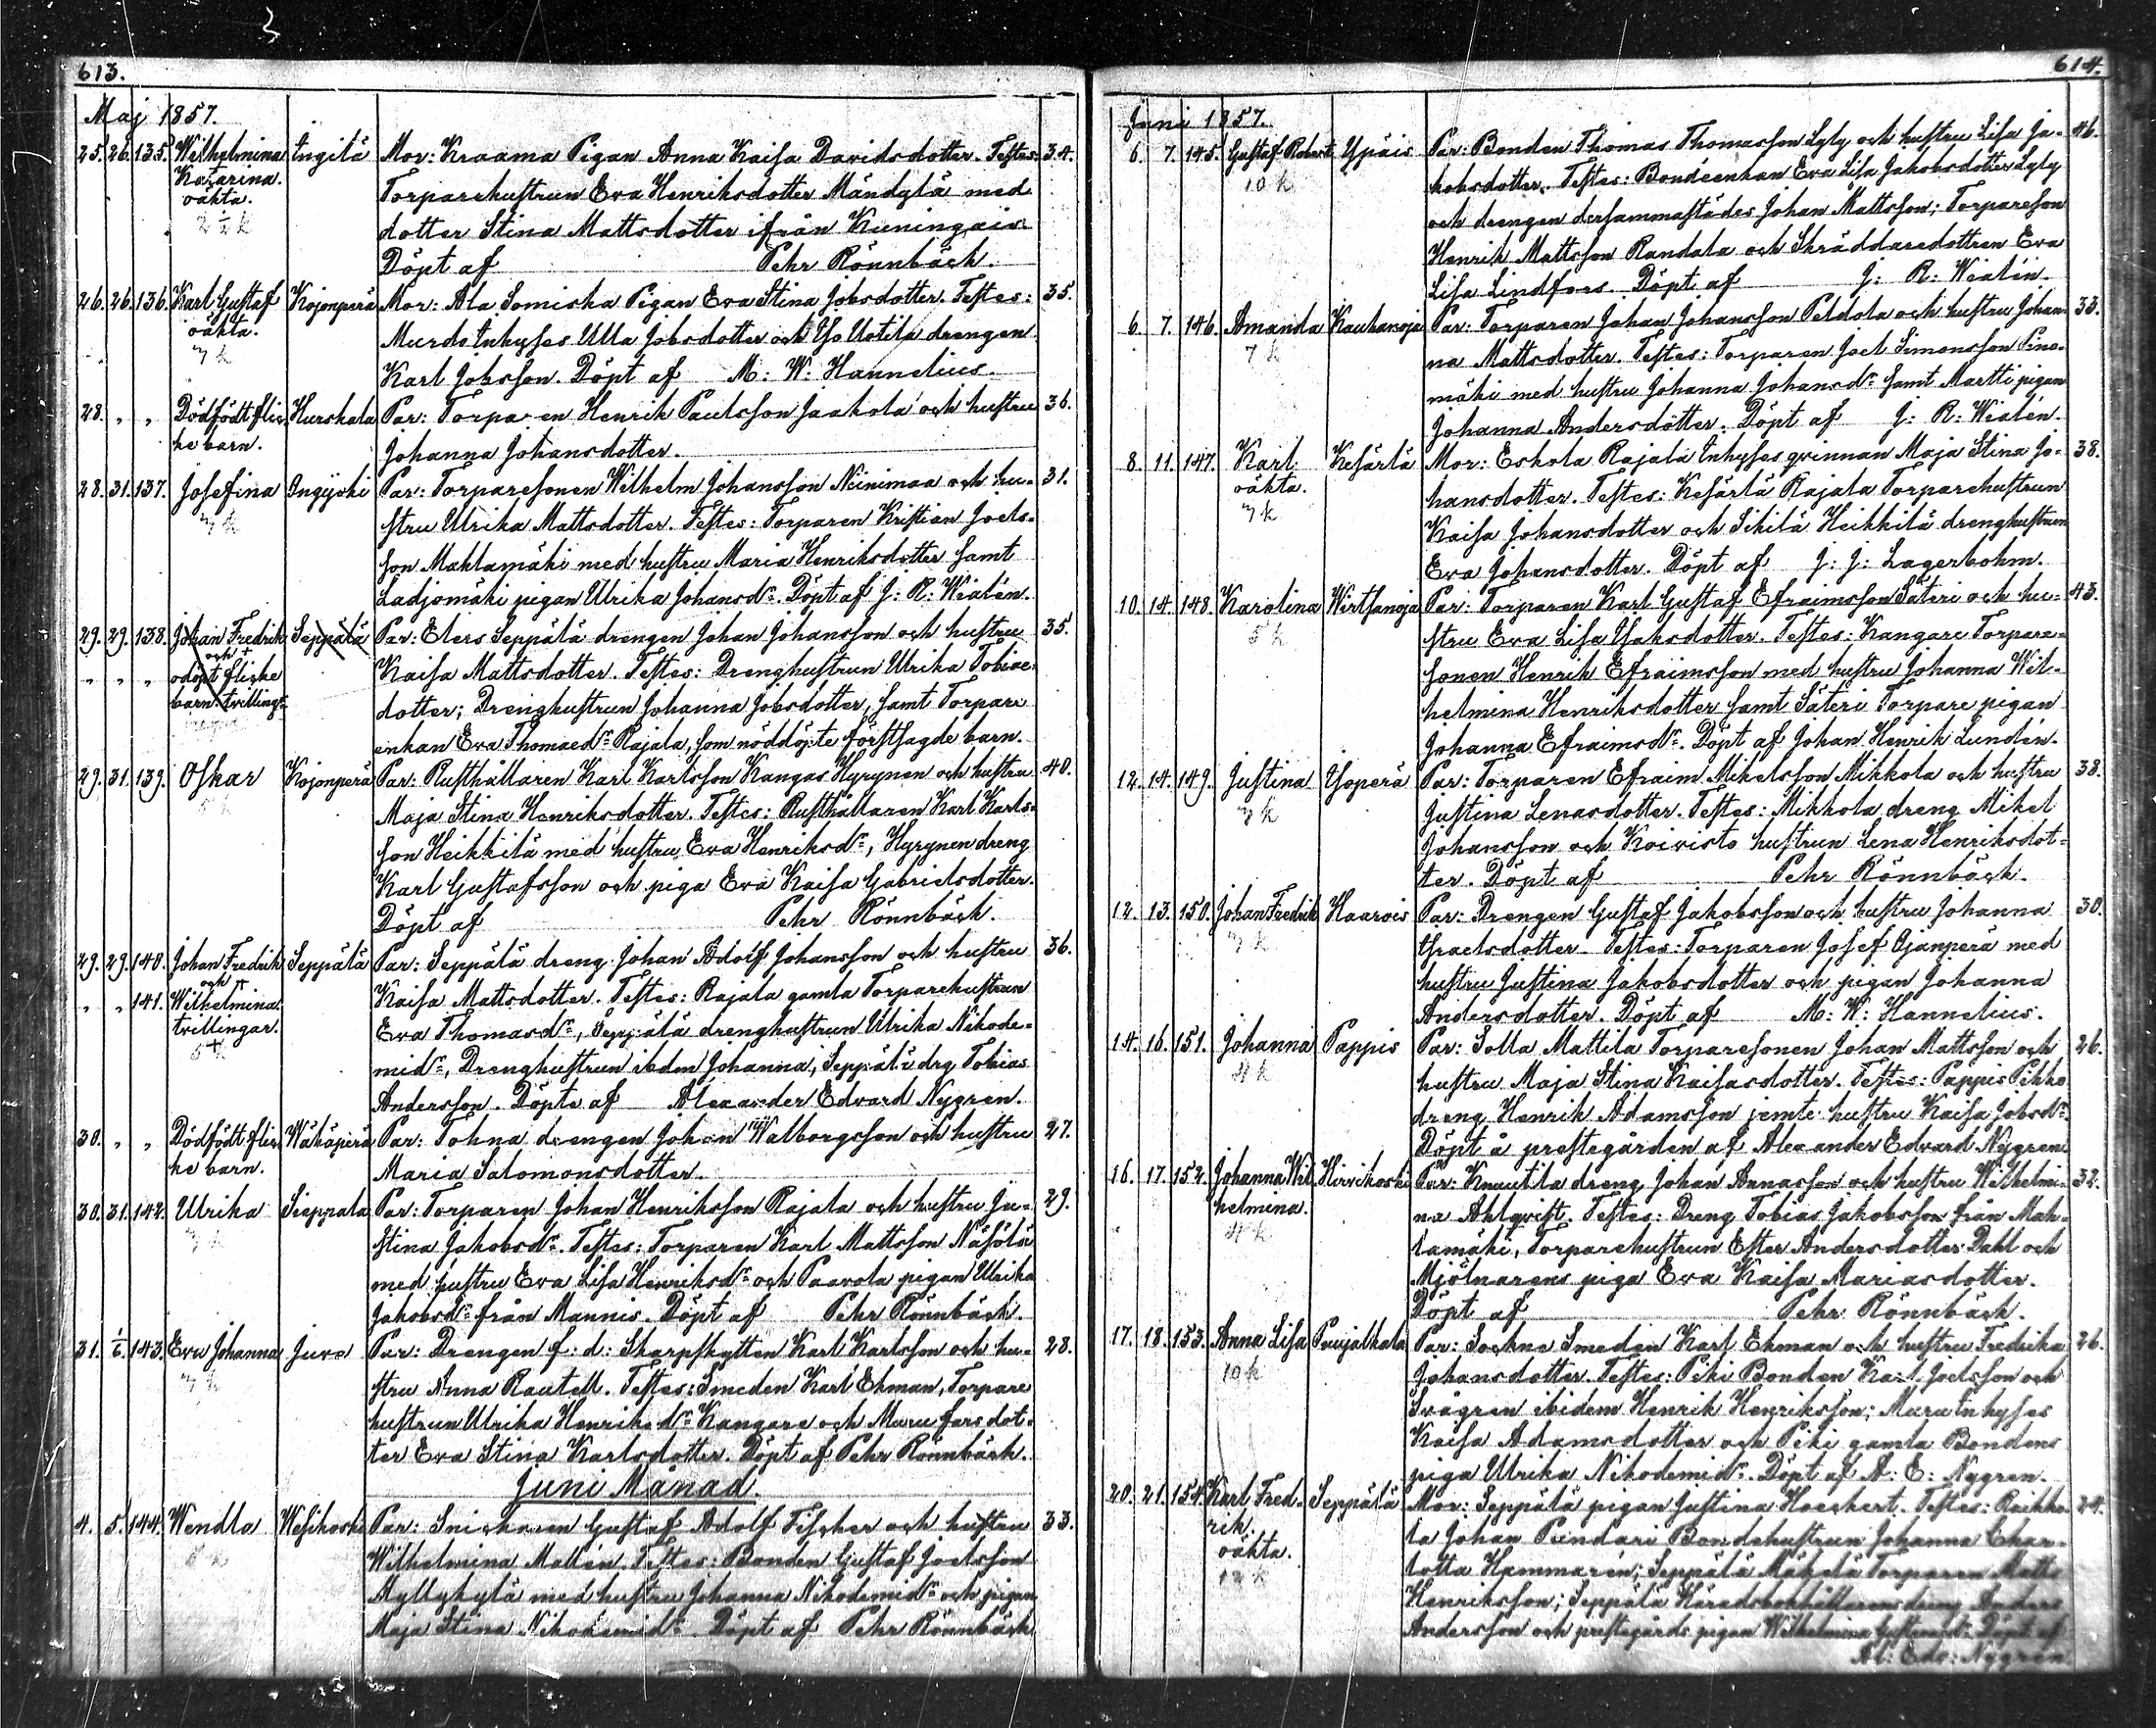 613.
Maj 1857.
25. 26. 135. Wilhelmina Ingilä Mor: Kraama Pigan Anna Kaisa Davidsdotter. Testes: 34.
Katarina. Torparehustrun Eva Henriksdotter Mändylä med
oäkta. dotter Stina Mattsdotter ifrån Kuningais
2½ k Döpt af Pehr Rönnbäck.
26. 26. 136. Karl Gustaf Kojonperä Mor: Ala Somiska Pigan Eva Stina Jobsdotter. Testes: 35.
oäkta. Murdo Inhyses Ulla Jobsdotter och Yso Uotila drengen
7 k Karl Jobsson. Döpt af M: W: Hannelius.
28. " " Dödfödt flic- Kurskala Par: Torparen Henrik Paulsson Jaakola och hustru 36.
ke barn. Johanna Johansdotter.
28. 31. 137. Josefina Ongijoki Par: Torparesonen Wilhelm Johansson Niinimaa och hu- 31.
7 k stru Ulrika Mattsdotter. Testes: Torparen Kristian Joels-
son Mahlamäki med hustru Maria Henriksdotter samt
Ladjomäki pigan Ulrika Johansdr. Döpt af J: R: Wialén.
29. 29. 138. Johan Fredrik Seppälä Par: Elers Seppälä drengen Johan Johansson och hustru 35.
och +
" " " odöpt flicke Kaisa Mattsdotter. Testes: Drenghustrun Ulrika Tobiae-
barn. tvillingr dotter; Drenghustrun Johanna Jobsdotter, samt Torpare
enkan Eva Thomaedr Rajala, som nöddöpte förstsagde barn.
29. 31. 139. Oskar Kojonperä Par: Rusthållaren Karl Karlsson Kangas Hyrynen och hustru 40.
5 k Maja Stina Henriksdotter. Testes: Rusthållaren Karl Karls-
son Heikkilä med hustru Eva Henriksdr, Hyrynen dreng
Karl Gustafsson och piga Eva Kaisa Gabrielsdotter.
Döpt af Pehr Rönnbäck.
29. 29. 140. Johan Fredrik Seppälä Par: Seppälä dreng Johan Adolf Johansson och hustru 36.
och +
" " 141. Wilhelmina Kaisa Mattsdotter. Testes: Rajala gamla Torparehustrun
tvillingar. Eva Thomasdr, Seppälä drenghustrun Ulrika Nikode-
5 k midr, Drenghustrun ibdem Johanna, Seppälä drg Tobias
Andersson. Döpte af Alexander Edvard Nygren.
30. " " Dödfödt flic- Wähäperä Par: Tohna drengen Johan Walborgsson och hustru 27.
ke barn. Maria Salomonsdotter.
30. 31. 142. Ulrika Sieppala Par: Torparen Johan Henriksson Rajala och hustru Ju- 29.
7 k stina Jakobsdr. Testes: Torparen Karl Mattsson Näsölä
med hustru Eva Lisa Henriksdr och Paavola pigan Ulrika
Jakobsdr från Mannis. Döpt af Pehr Rönnbäck.
31. 1/6. 143. Eva Johanna Juva Par: Drengen f: d: Skarpskytten Karl Karlsson och hu- 28.
7 k stru Anna Rautell. Testes: Smeden Karl Ekman, Torpare
hustrun Ulrika Henriksdr Kangare och Muru fars dot-
ter Eva Stina Karlsdotter. Döpt af Pehr Rönnbäck.
Juni Månad.
4. 5. 144. Wendla Wesikoski Par: Snickaren Gustaf Adolf Fischer och hustru 33.
Wilhelmina Mallén. Testes: Bonden Gustaf Joelsson
Myllykylä med hustru Johanna Nikodemidr och pigan
Maja Stina Nikodemidr Döpt af Pehr Rönnbäck
614.
Juni 1857.
6. 7. 145. Gustaf Robert Ypäis Par: Bonden Thomas Thomasson Lyly och hustru Lisa Ja- 46.
10 k kobsdotter. Testes: Bondeenkan Eva Lisa Jakobsdotter Lyly
och drengen dersammastädes Johan Mattsson; Torpareson
Henrik Mattsson Randala och Skräddaredottren Eva
Lisa Lindfors. Döpt af J: R: Wialén.
6. 7. 146. Amanda Kauhanoja Par: Torparen Johan Johansson Peldola och hustru Johan- 33.
7 k na Mattsdotter. Testes: Torparen Joel Simonsson Pino-
mäki med hustru Johanna Johansdr samt Martti pigan
Johanna Andersdotter. Döpt af J: R: Wialén.
8. 11. 147. Karl Kesärlä Mor: Eskola Rajala Inhyses qvinnan Maja Stina Jo- 38.
oäkta. hansdotter. Testes: Kesärlä Rajala Torparehustrun
7 k Kaisa Johansdotter och Sikilä Heikkilä drenghustrun
Eva Johansdotter. Döpt af J: J: Lagerbohm.
10. 14. 148. Karolina Wirtsanoja Par: Torparen Karl Gustaf Efraimsson Säteri och hu- 43.
5 k stru Eva Lisa Isaksdotter. Testes: Kangare Torpare-
sonen Henrik Efraimsson med hustru Johanna Wil-
helmina Henriksdotter samt Säteri Torpare pigan
Johanna Efraimsdr. Döpt af Johan Henrik Lundén.
12. 14. 149. Justina Ysoperä Par: Torparen Efraim Mikelsson Mikkola och hustru 38.
7 k Justina Lenasdotter. Testes: Mikkola dreng Mikel
Johansson och Koivisto hustrun Lena Henriksdot-
ter. Döpt af Pehr Rönnbäck.
12. 13. 150. Johan Fredrik Haarois Par: Drengen Gustaf Jakobsson och hustru Johanna 30.
7 k Israelsdotter. Testes: Torparen Josef Ojanperä med
hustru Justina Jakobsdotter och pigan Johanna
Andersdotter. Döpt af M: W: Hannelius.
14. 16. 151. Johanna Pappis Par: Solla Mattila Torparesonen Johan Mattsson och 26.
4 k hustru Maja Stina Kaisasdotter. Testes: Pappis Pekko
dreng Henrik Adamsson jemte hustru Kaisa Jobsdr
Döpt å prestegården af Alexander Edvard Nygren
16. 17. 152. Johanna Wil Hirvikoski Par: Knuutila dreng Johan Annasson och hustru Wilhelmi- 32.
helmina. na Ahlqvist. Testes: Dreng Tobias Jakobsson från Mah-
4 k lamäki, Torparehustrun Ester Andersdotter Dahl och
Mjölnarens piga Eva Kaisa Mariasdotter.
Döpt af Pehr Rönnbäck.
17. 18. 153. Anna Lisa Puujalkala Par: Sockne Smeden Karl Ekman och hustru Fredrika 26.
10 k Johansdotter. Testes: Piki Bonden Karl Joelsson och
Svågren ibidem Henrik Henriksson; Muru Inhyses
Kaisa Adamsdotter och Piki gamla Bondens
piga Ulrika Nikodemidr. Döpt af A: E: Nygren.
20. 21. 154. Karl Fred- Seppälä Mor: Seppälä pigan Justina Hoeckert. Testes: Raikko- 24.
rik. la Johan Pundari Bondehustrun Johanna Char-
oäkta. lotta Hammarén; Seppälä Mäkelä Torparen Matts
12 k Henriksson; Seppälä Häradsbokhållarens dreng Anders
Andersson och prestegårds pigan Wilhelmina Döpt af
Al: Edv: Nygren